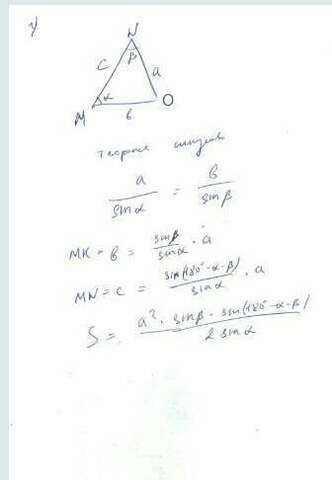 N
β
c
a
α
M
b
O
теорема синусов
a / sin α = b / sin β
MK = b = sin β / sin α · a
MN = c = sin(180° - α - β) / sin α · a
S = a² · sin β · sin(180° - α - β) / 2 sin α